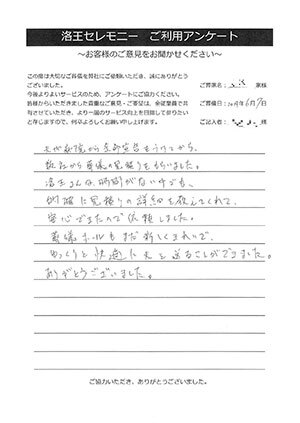 洛王セレモニー　ご利用アンケート
～お客様のご意見をお聞かせください～
この度は大切なご葬儀を弊社にご依頼いただき、誠にありがとう
ございました。
今後よりよいサービスのため、アンケートにご協力ください。
皆様からいただきました貴重なご意見・ご要望は、全従業員で共
有させていただき、より一層のサービス向上を目指して参りたい
と存じますので、何卒よろしくお願い申し上げます。
ご葬家名： 家様
ご葬儀日：
ご記入者： 様
夫が病院から余命宣告をうけてから、
数社から葬儀の見積りをもらいました。
洛王さんは、時間がない中でも、
明確に見積りの詳細を教えてくれて、
安心できたので依頼しました。
葬儀ホールもまだ新しくきれいで、
ゆっくりと快適に夫を送ることができました。
ありがとうございました。
ご協力いただき、ありがとうございました。